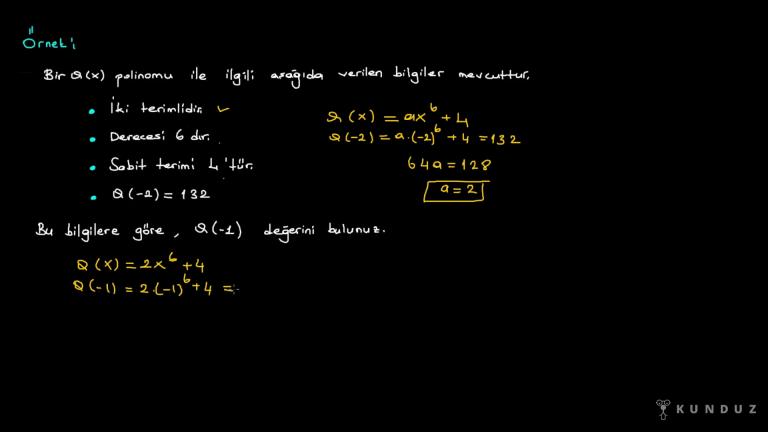 Örnek:
Bir Q(x) polinomu ile ilgili aşağıda verilen bilgiler mevcuttur.
• İki terimlidir. ✓
• Derecesi 6 dır.
• Sabit terimi 4'tür.
• Q(-2) = 132
Q(x) = ax⁶ + 4
Q(-2) = a.(-2)⁶ + 4 = 132
64a = 128
a = 2
Bu bilgilere göre, Q(-1) değerini bulunuz.
Q(x) = 2x⁶ + 4
Q(-1) = 2.(-1)⁶ + 4 =
KUNDUZ